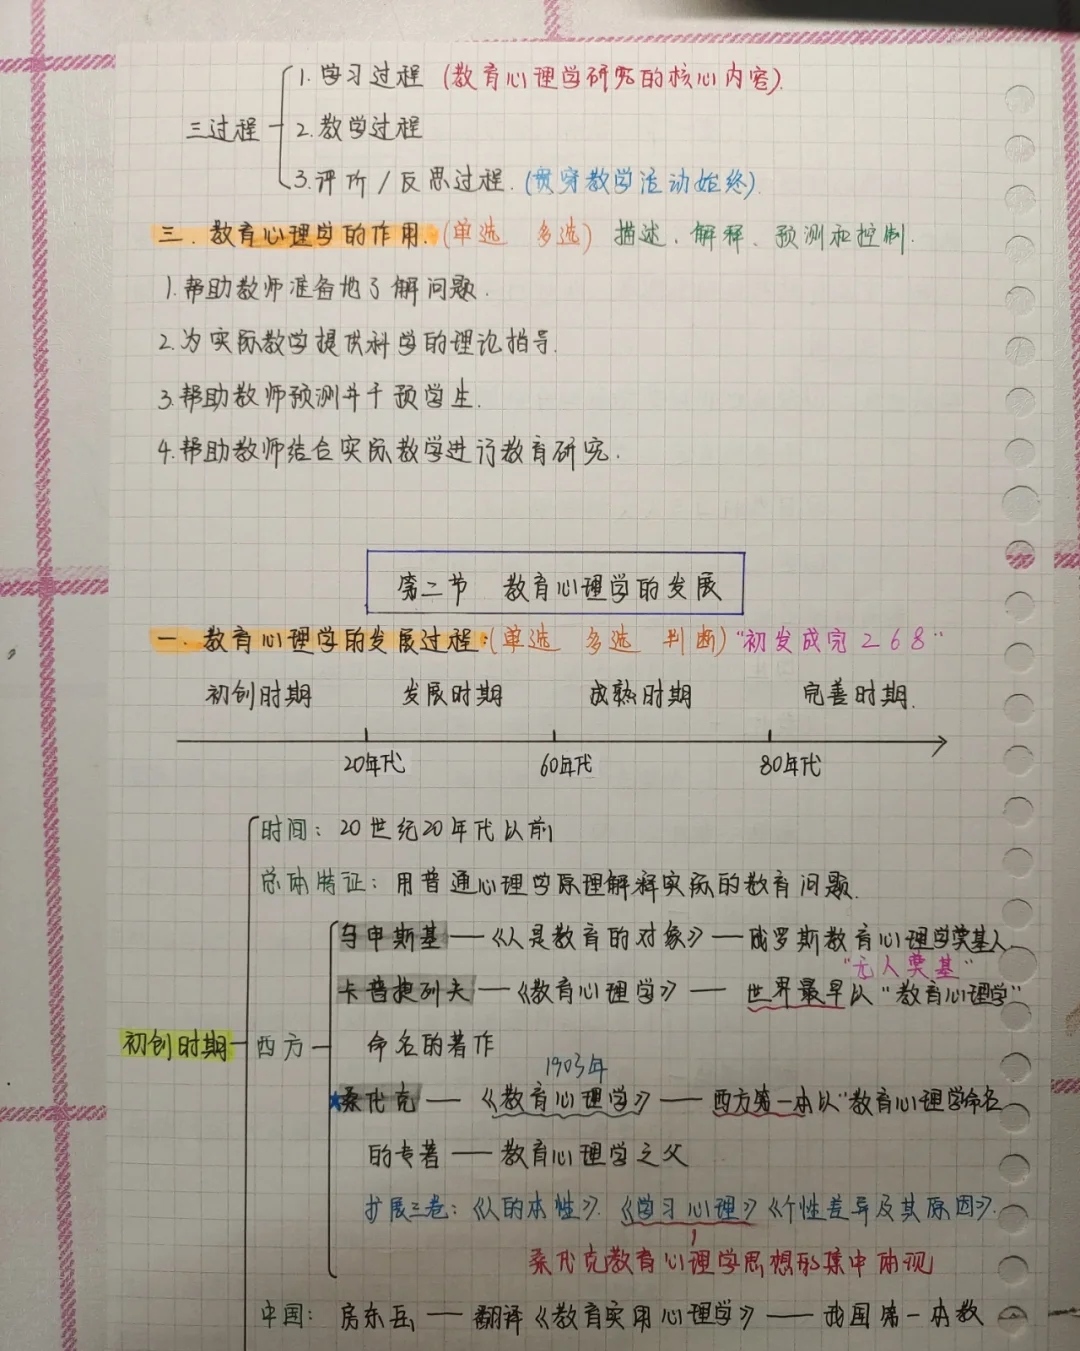 1.学习过程 (教育心理学研究的核心内容).
三过程 2.教学过程
3.评价/反思过程.(贯穿教学活动始终).
三.教育心理学的作用.(单选 多选) 描述、解释、预测和控制.
1.帮助教师准备地了解问题.
2.为实际教学提供科学的理论指导.
3.帮助教师预测并干预学生.
4.帮助教师结合实际教学进行教育研究.
第二节 教育心理学的发展
一.教育心理学的发展过程:(单选 多选 判断)"初发成完268"
初创时期 发展时期 成熟时期 完善时期.
20年代 60年代 80年代
时间: 20世纪20年代以前
总体特证: 用普通心理学原理解释实际的教育问题.
乌申斯基——《人是教育的对象》——俄罗斯教育心理学奠基人
"元人奠基"
卡普捷列夫——《教育心理学》—— 世界最早以"教育心理学"
初创时期 西方 命名的著作
1903年
★桑代克——《教育心理学》—— 西方第一本以"教育心理学命名
的专著——教育心理学之父
扩展三卷:《人的本性》.《学习心理》《个性差异及其原因》.
桑代克教育心理学思想的集中体现
中国: 房东岳——翻译《教育实用心理学》——我国第一本教